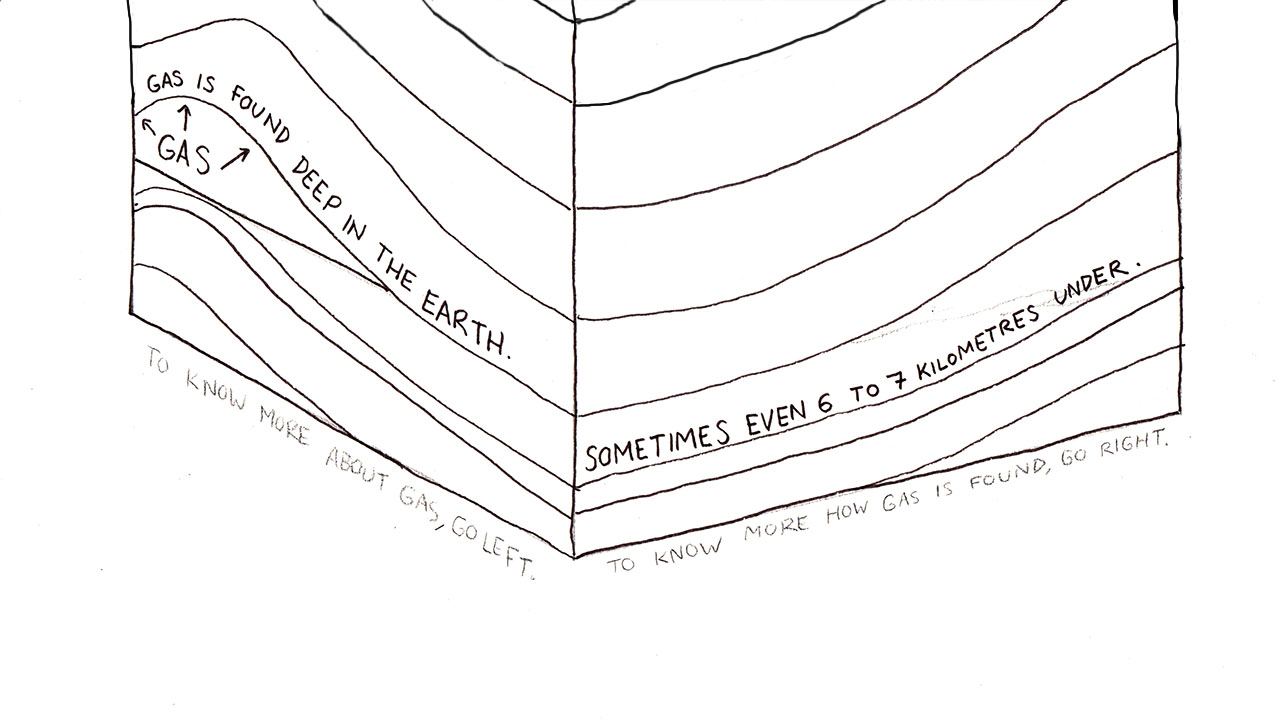 GAS IS FOUND DEEP IN THE EARTH.
GAS
SOMETIMES EVEN 6 TO 7 KILOMETRES UNDER.
TO KNOW MORE ABOUT GAS, GO LEFT.
TO KNOW MORE HOW GAS IS FOUND, GO RIGHT.